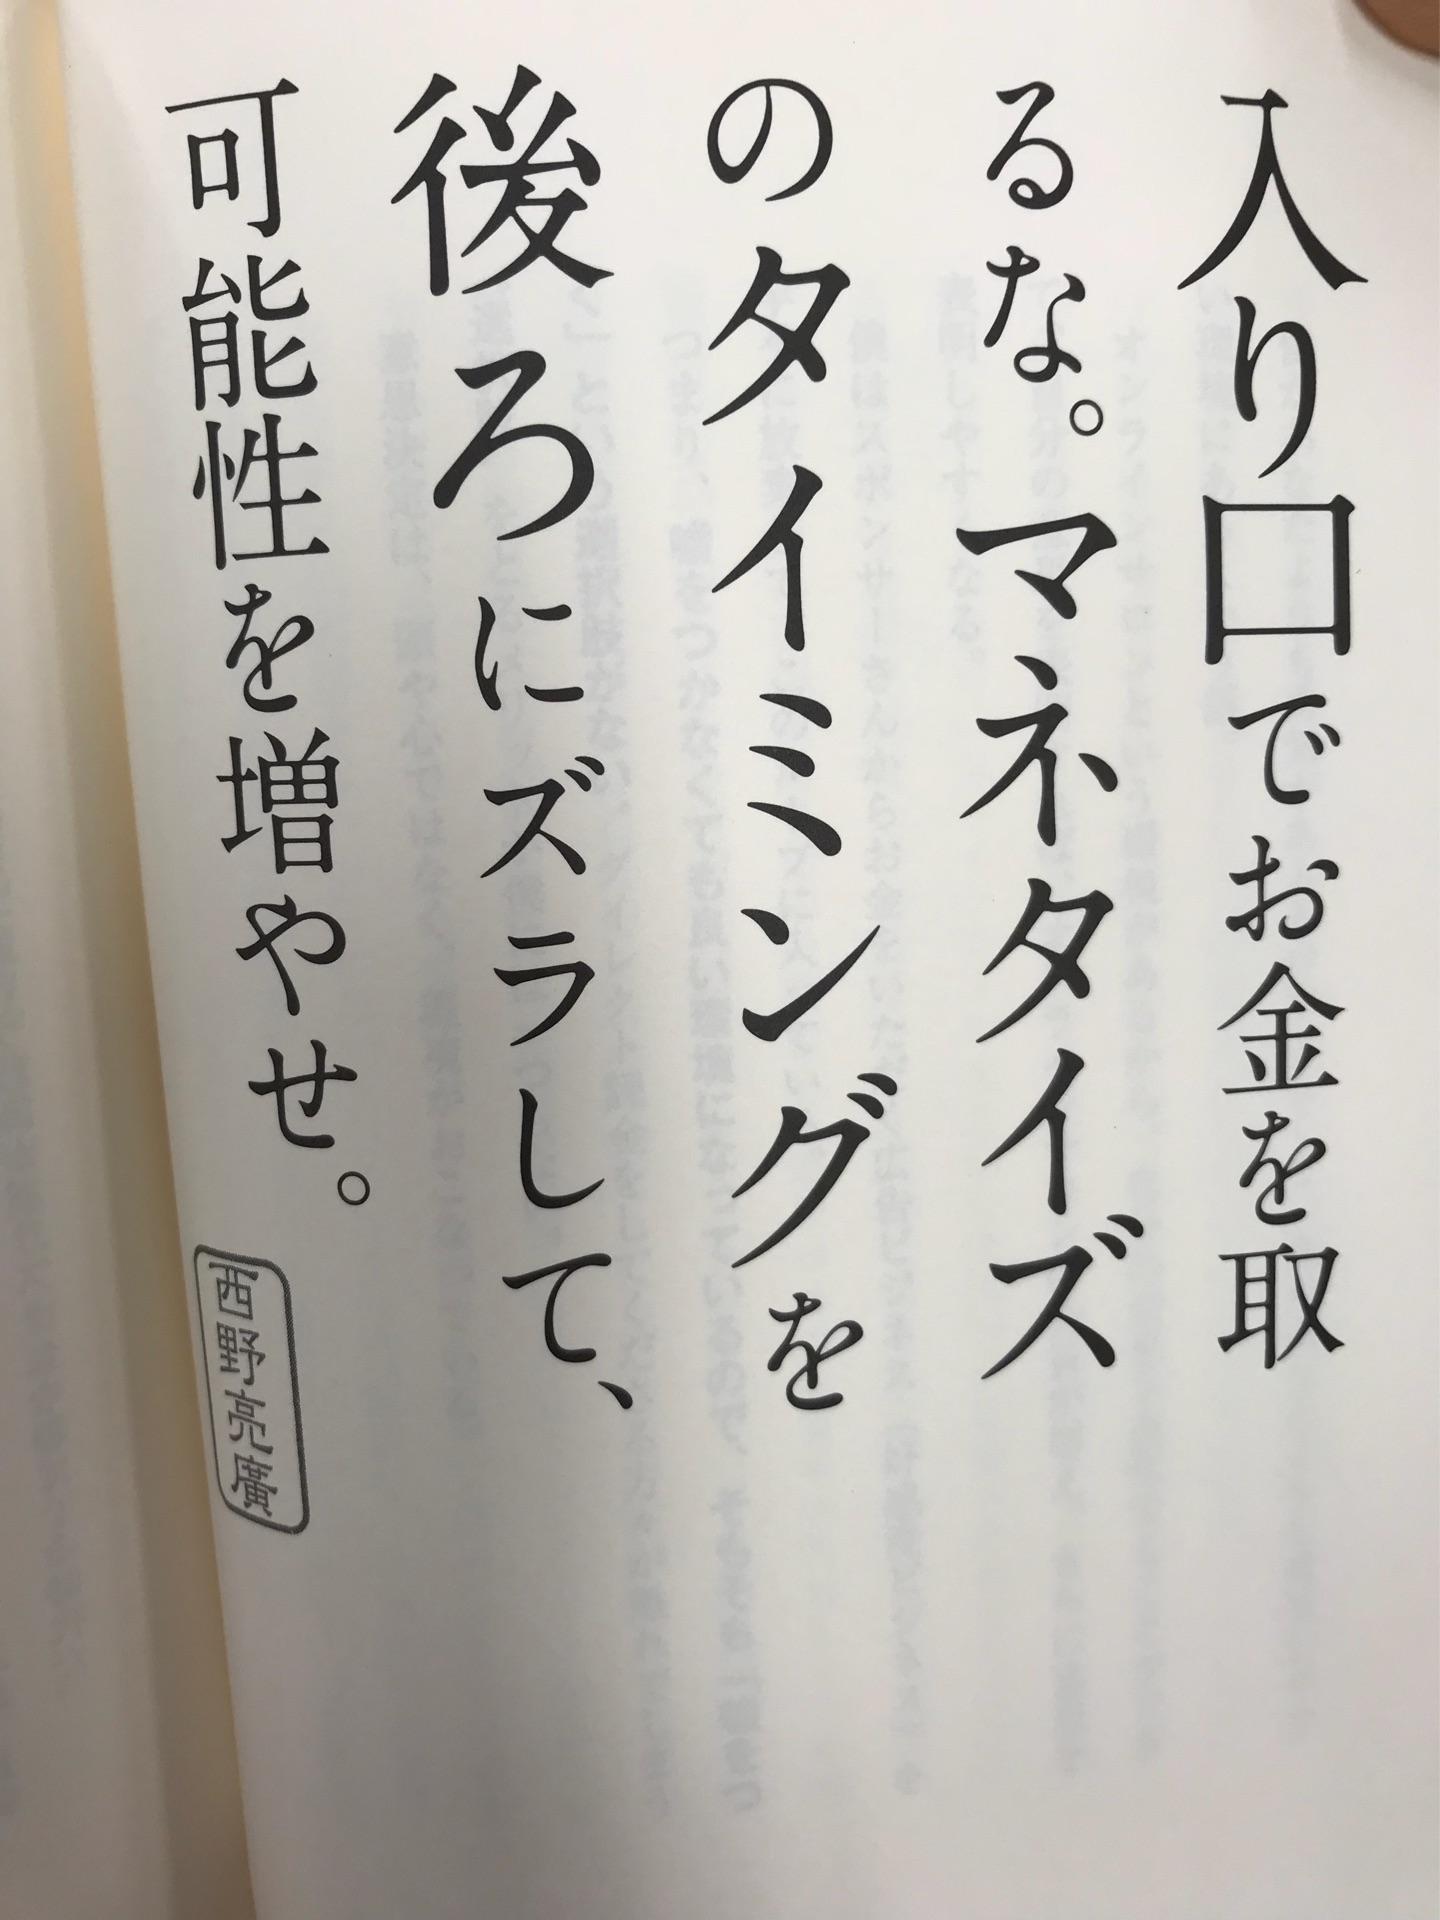 入り口でお金を取
るな。マネタイズ
のタイミングを
後ろにズラして、
可能性を増やせ。
西野亮廣